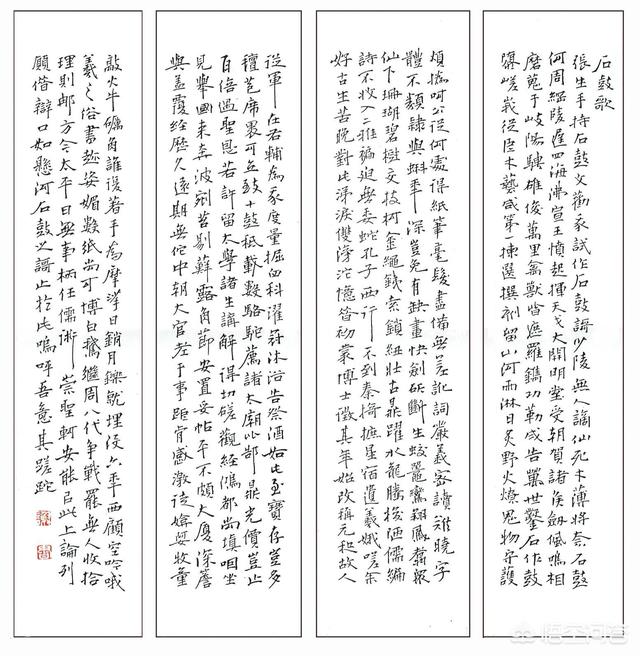 石鼓歌
張生手持石鼓文勸我試作石鼓謌少陵無人謫仙死才薄將奈石鼓
何周綱陵遲四海沸宣王憤起揮天戈大開明堂受朝賀諸侯劍佩鳴相
磨蒐于岐陽騁雄俊萬里禽獸皆遮羅鐫功勒成告萬世鑿石作鼓
隳嵯峨從臣才藝咸第一揀選撰刻留山河雨淋日炙野火燎鬼物守護
煩撝呵公從何處得紙本毫髮盡備無差訛詞嚴義密讀難曉字
體不類隸與蝌年深豈免有缺畫快劍斫斷生蛟鼉鸞翔鳳翥眾
仙下珊瑚碧樹交枝柯金繩鐵索鎖鈕壯古鼎躍水龍騰梭陋儒編
詩不收入二雅褊迫無委蛇孔子西行不到秦掎摭星宿遺羲娥嗟余
好古生苦晚對此涕淚雙滂沱憶昔初蒙博士徵其年始改稱元和故人
從軍在右輔為我度量掘臼科濯冠沐浴告祭酒如此至寶存豈多
氈苞席裹可立致十鼓祇載數駱駝薦諸太廟比郜鼎光價豈止
百倍過聖恩若許留太學諸生講解得切磋觀經鴻都尚填咽坐
見舉國來奔波剜苔剔蘚露角節安置妥帖平不頗大廈深簷
與蓋覆經歷久遠期無佗中朝大官老于事詎肯感激徒媕婀牧童
敲火牛礪角誰復著手為摩挲日銷月鑠就埋沒六年西顧空吟哦
羲之俗書趁姿媚數紙尚可博白鵝繼周八代爭戰罷無人收拾
理則那方今太平日無事柄任儒術崇聖軻安能以此上論列
願借辯口如懸河石鼓之謌止於此嗚呼吾意其蹉跎
悟空问答